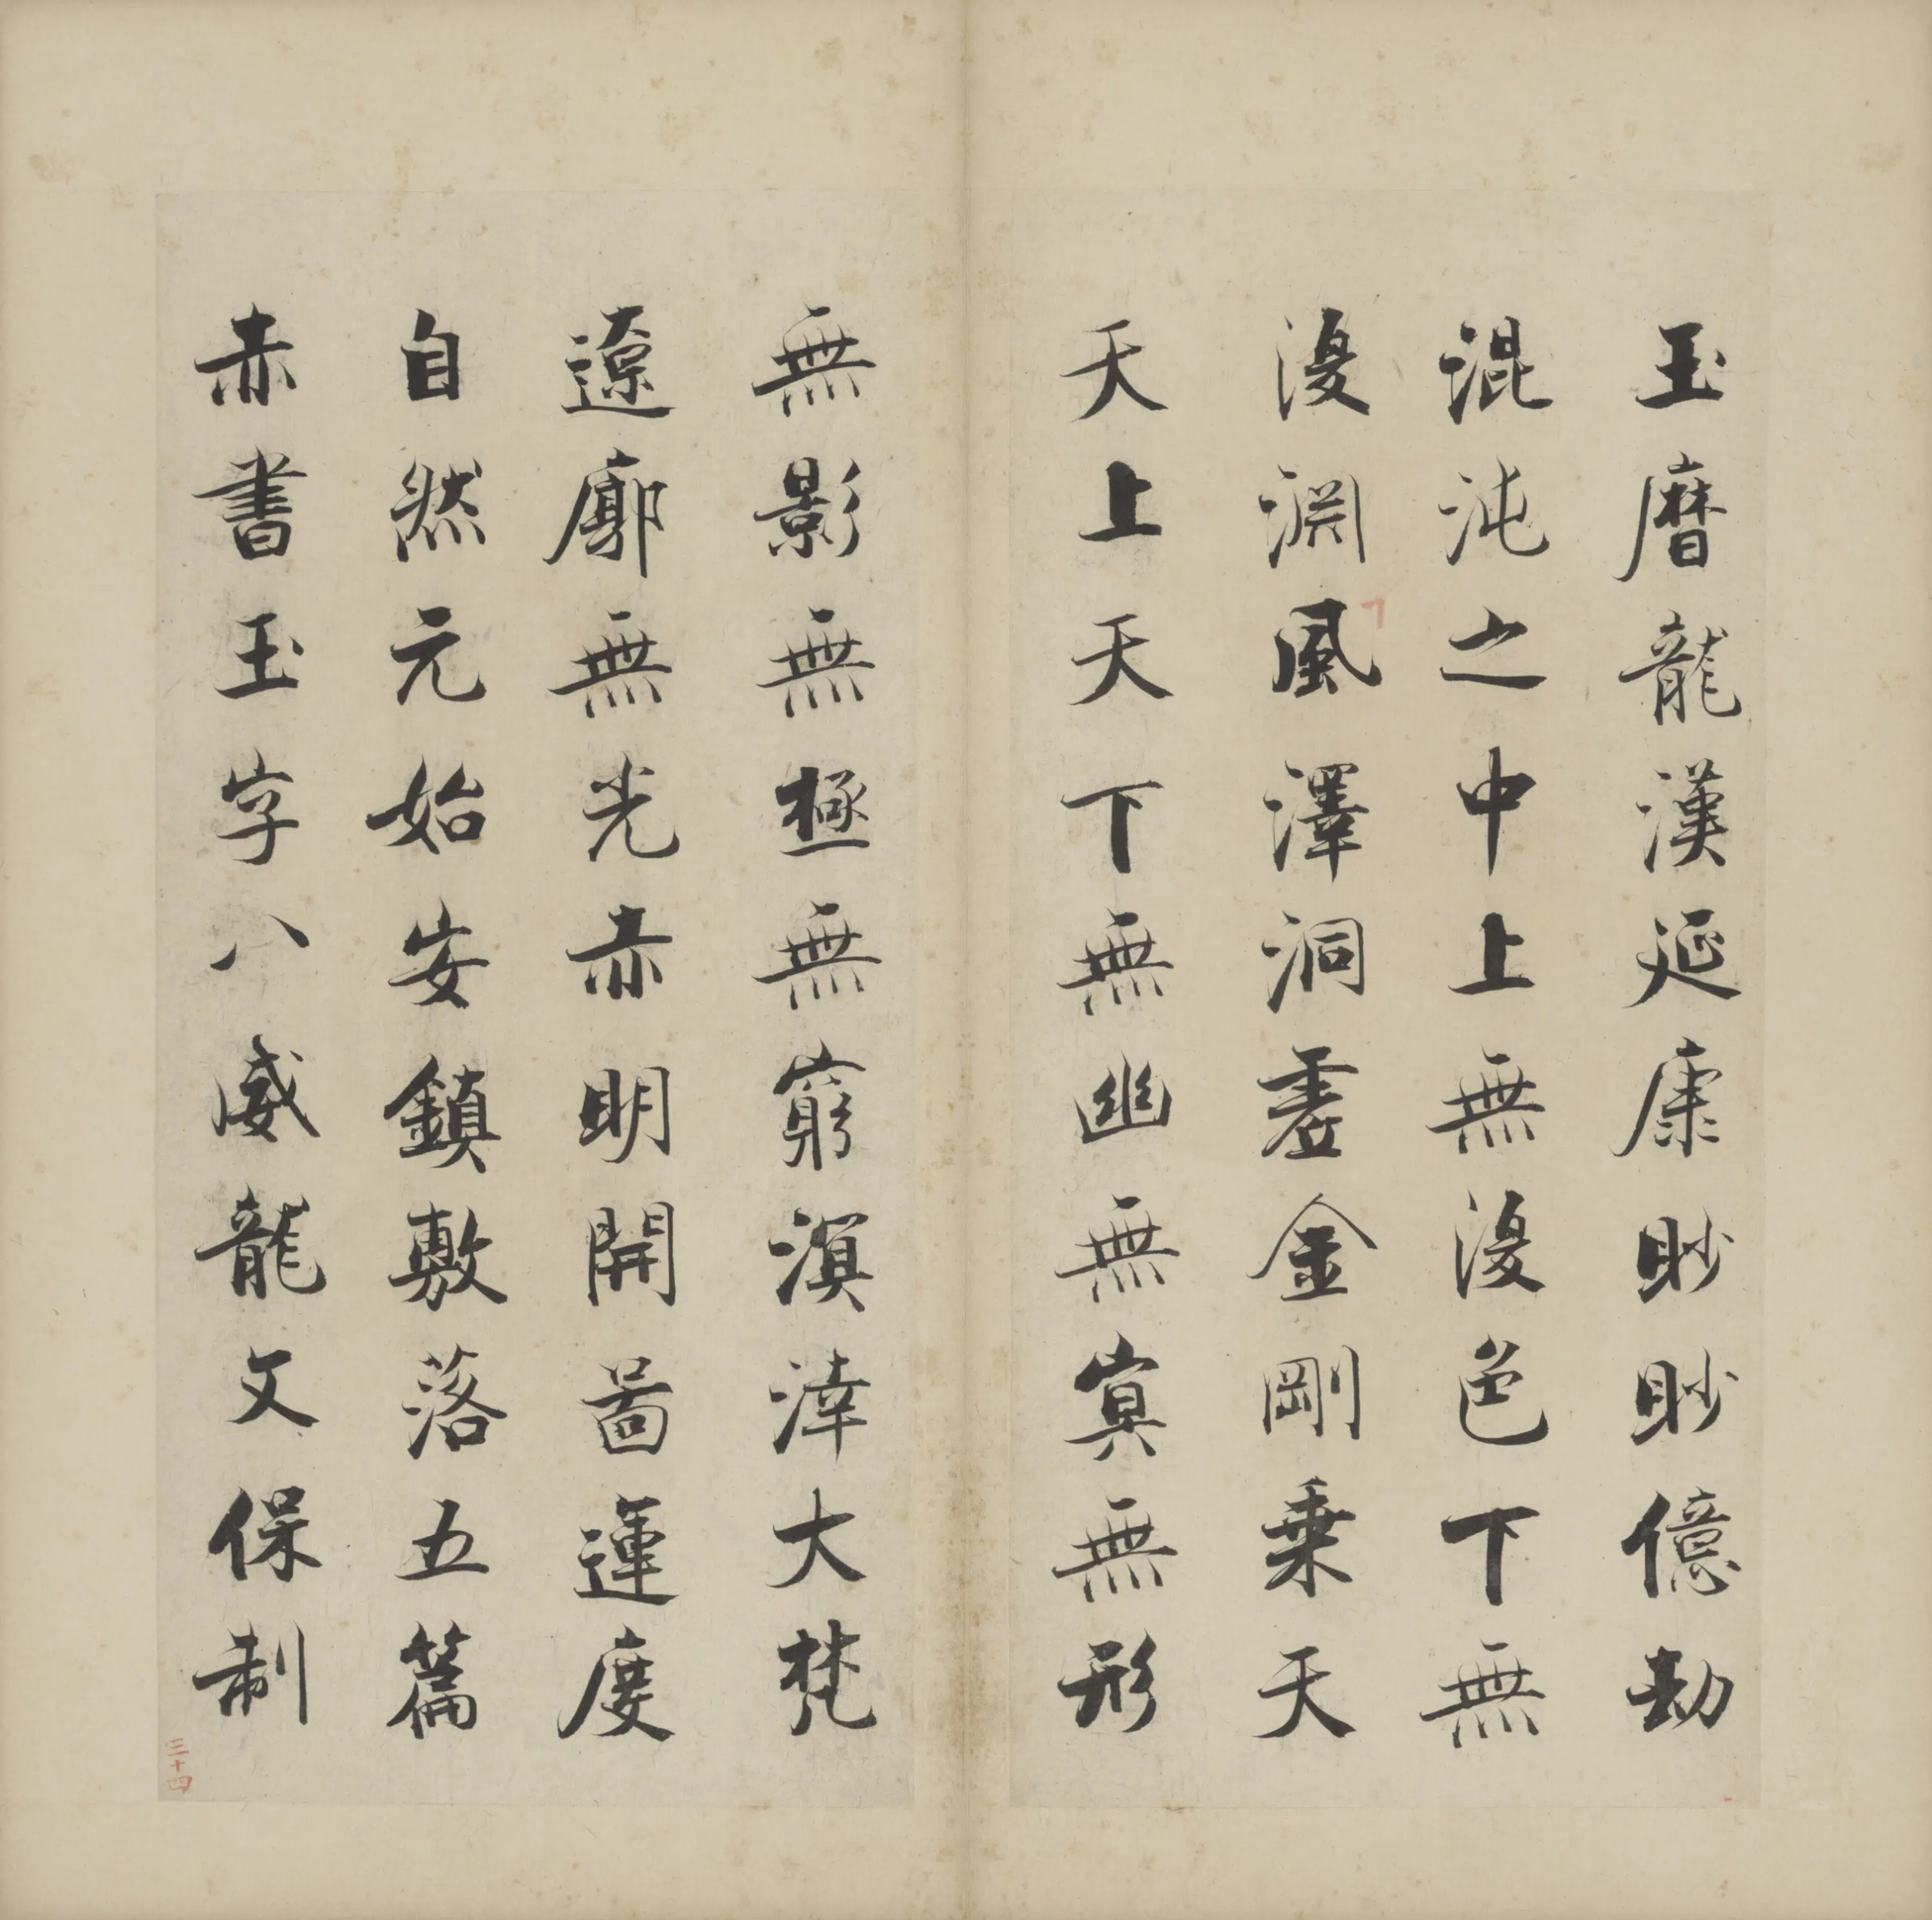 玉曆龍漢延康眇眇億劫
混沌之中上無復色下無
復淵風澤洞虛金剛乗天
天上天下無幽無冥無形
無影無極無窮溟涬大梵
遼廓無光赤明開圖運度
自然元始安鎮敷落五篇
赤書玉字八威龍文保制
三十四